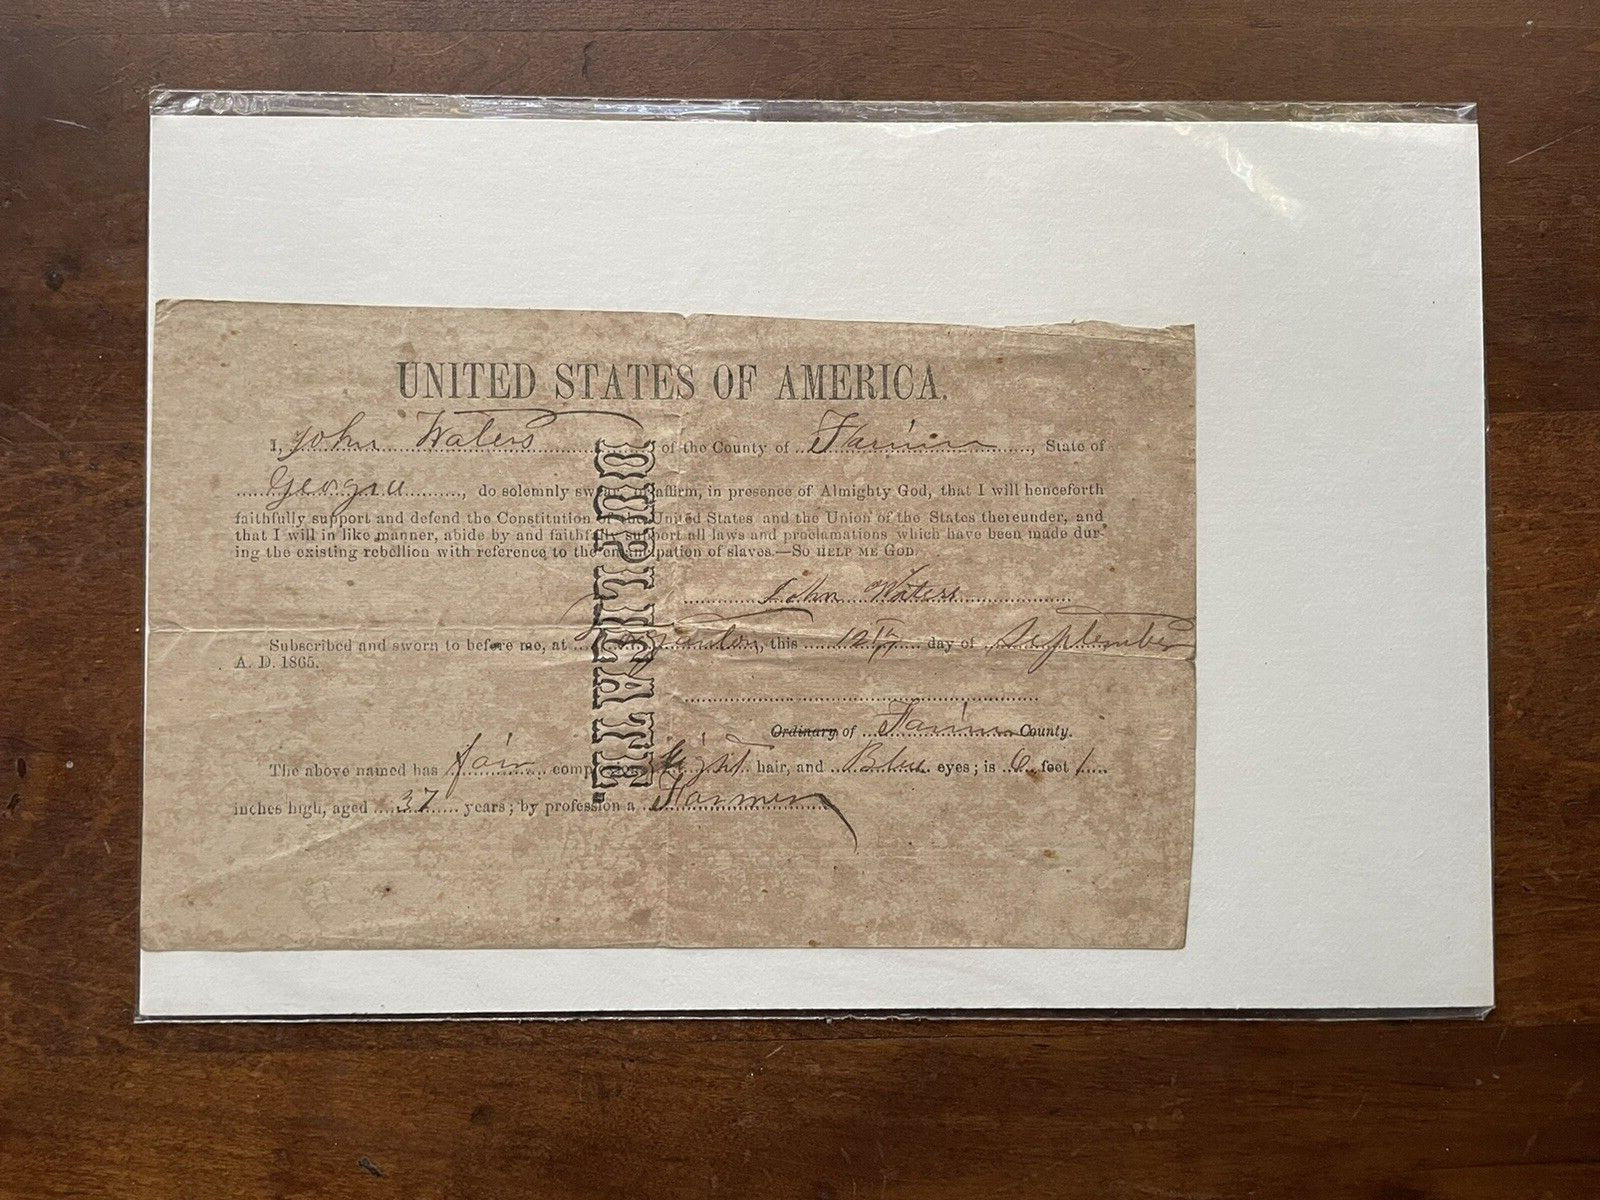 UNITED STATES OF AMERICA.
I, John Waters of the County of Fannin, State of
Georgia, do solemnly swear or affirm, in presence of Almighty God, that I will henceforth
faithfully support and defend the Constitution of the United States and the Union of the States thereunder, and
that I will in like manner, abide by and faithfully support all laws and proclamations which have been made dur-
ing the existing rebellion with reference to the emancipation of slaves.—SO HELP ME GOD.
John Waters
Subscribed and sworn to before me, at Morganton, this 12th day of September
A. D. 1865.
Ordinary of Fannin County.
The above named has fair complexion, light hair, and Blue eyes; is 6 feet 1
inches high, aged 37 years; by profession a Farmer
DUPLICATE.